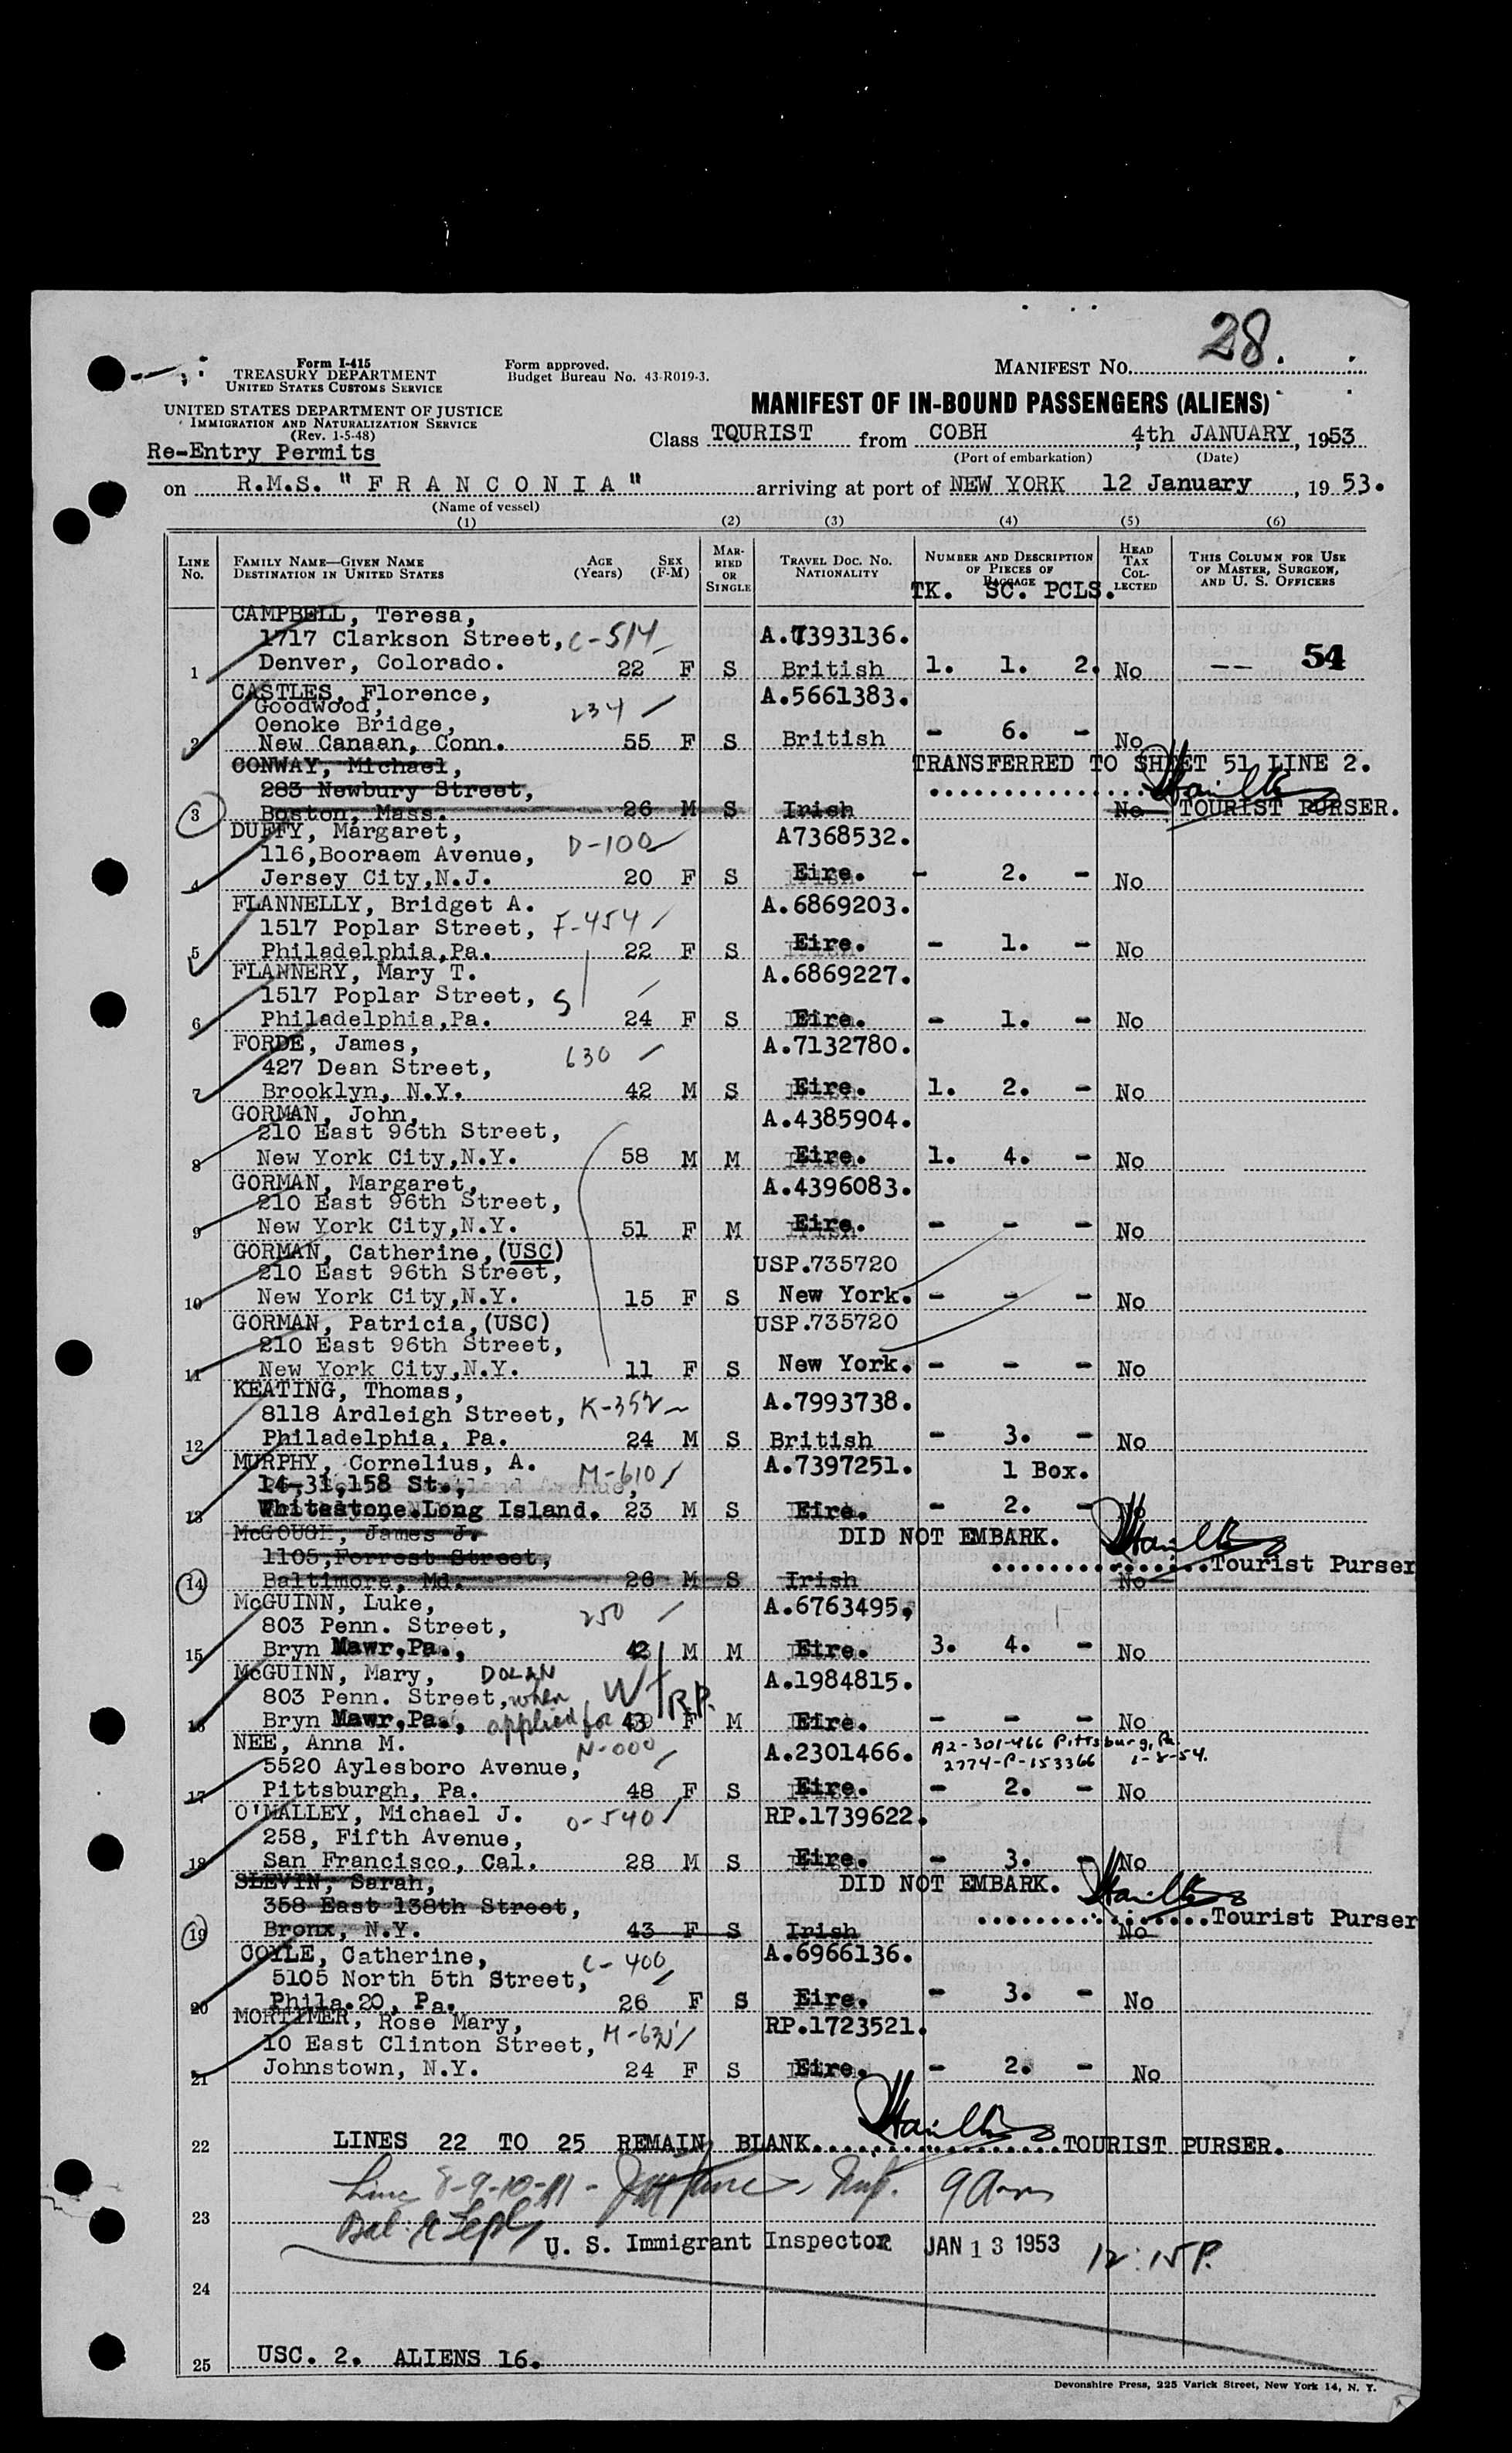 28.
Form I-415
TREASURY DEPARTMENT
UNITED STATES CUSTOMS SERVICE
Form approved.
Budget Bureau No. 43-R019-3.
MANIFEST NO.
UNITED STATES DEPARTMENT OF JUSTICE
IMMIGRATION AND NATURALIZATION SERVICE
(Rev. 1-5-48)
MANIFEST OF IN-BOUND PASSENGERS (ALIENS)
Re-Entry Permits
Class TQURIST from COBH 4th JANUARY, 1953
(Port of embarkation) (Date)
on R.M.S. "FRANCONIA" arriving at port of NEW YORK 12 January, 1953.
(Name of vessel)
(1) (2) (3) (4) (5) (6)
LINE NO. FAMILY NAME—GIVEN NAME DESTINATION IN UNITED STATES AGE (Years) SEX (F-M) MARRIED OR SINGLE TRAVEL DOC. NO. NATIONALITY NUMBER AND DESCRIPTION OF PIECES OF BAGGAGE HEAD TAX COLLECTED THIS COLUMN FOR USE OF MASTER, SURGEON, AND U. S. OFFICERS
TK. SC. PCLS.
CAMPBELL, Teresa,
1717 Clarkson Street, C-514 A.7393136.
1 Denver, Colorado. 22 F S British 1. 1. 2. No -- 54
CASTLES, Florence, A.5661383.
Goodwood, 234
Oenoke Bridge,
2 New Canaan, Conn. 55 F S British - 6. - No
CONWAY, Michael, TRANSFERRED TO SHEET 51 LINE 2.
283 Newbury Street,
3 Boston, Mass. 26 M S Irish No TOURIST PURSER.
DUFFY, Margaret, A7368532.
116, Booraem Avenue, D-100
4 Jersey City, N.J. 20 F S Eire. - 2. - No
FLANNELLY, Bridget A. A.6869203.
1517 Poplar Street, F-454
5 Philadelphia, Pa. 22 F S Eire. - 1. - No
FLANNERY, Mary T. A.6869227.
1517 Poplar Street, S
6 Philadelphia, Pa. 24 F S Eire. - 1. - No
FORDE, James, A.7132780.
427 Dean Street, 630
7 Brooklyn, N.Y. 42 M S Eire. 1. 2. - No
GORMAN, John, A.4385904.
210 East 96th Street,
8 New York City, N.Y. 58 M M Eire. 1. 4. - No
GORMAN, Margaret, A.4396083.
210 East 96th Street,
9 New York City, N.Y. 51 F M Eire. - - - No
GORMAN, Catherine, (USC) USP.735720
210 East 96th Street,
10 New York City, N.Y. 15 F S New York. - - - No
GORMAN, Patricia, (USC) USP.735720
210 East 96th Street,
11 New York City, N.Y. 11 F S New York. - - - No
KEATING, Thomas, A.7993738.
8118 Ardleigh Street, K-352
12 Philadelphia, Pa. 24 M S British - 3. - No
MURPHY, Cornelius, A. A.7397251. 1 Box.
14-31, 158 St., M-610
13 Whitestone. Long Island. 23 M S Eire. - 2. - No
McGOUGH, James J. DID NOT EMBARK.
1105, Forrest Street, Tourist Purser
14 Baltimore, Md. 26 M S Irish No
McGUINN, Luke, A.6763495,
803 Penn. Street, 250
15 Bryn Mawr, Pa., 42 M M Eire. 3. 4. - No
McGUINN, Mary, DOLAN A.1984815.
803 Penn. Street, when
16 Bryn Mawr, Pa., applied for R.P. 43 F M Eire. - - - No
NEE, Anna M. N-000 A.2301466. A2-301-466 Pittsburg, Pa
5520 Aylesboro Avenue, 2774-P-153366 1-8-54.
17 Pittsburgh, Pa. 48 F S Eire. - 2. - No
O'MALLEY, Michael J. O-540 RP.1739622.
258, Fifth Avenue,
18 San Francisco, Cal. 28 M S Eire. - 3. - No
SLEVIN, Sarah, DID NOT EMBARK.
358 East 138th Street, Tourist Purser
19 Bronx, N.Y. 43 F S Irish No
COYLE, Catherine, C-400 A.6966136.
5105 North 5th Street,
20 Phila. 20, Pa. 26 F S Eire. - 3. - No
MORTIMER, Rose Mary, RP.1723521.
10 East Clinton Street,
21 Johnstown, N.Y. 24 F S Eire. - 2. - No
22 LINES 22 TO 25 REMAIN BLANK. TOURIST PURSER.
Line 8-9-10-11 - Insp. 9 Am
23
U. S. Immigrant Inspector JAN 13 1953 12:15 P.
24
25 USC. 2. ALIENS 16.
Devonshire Press, 225 Varick Street, New York 14, N. Y.